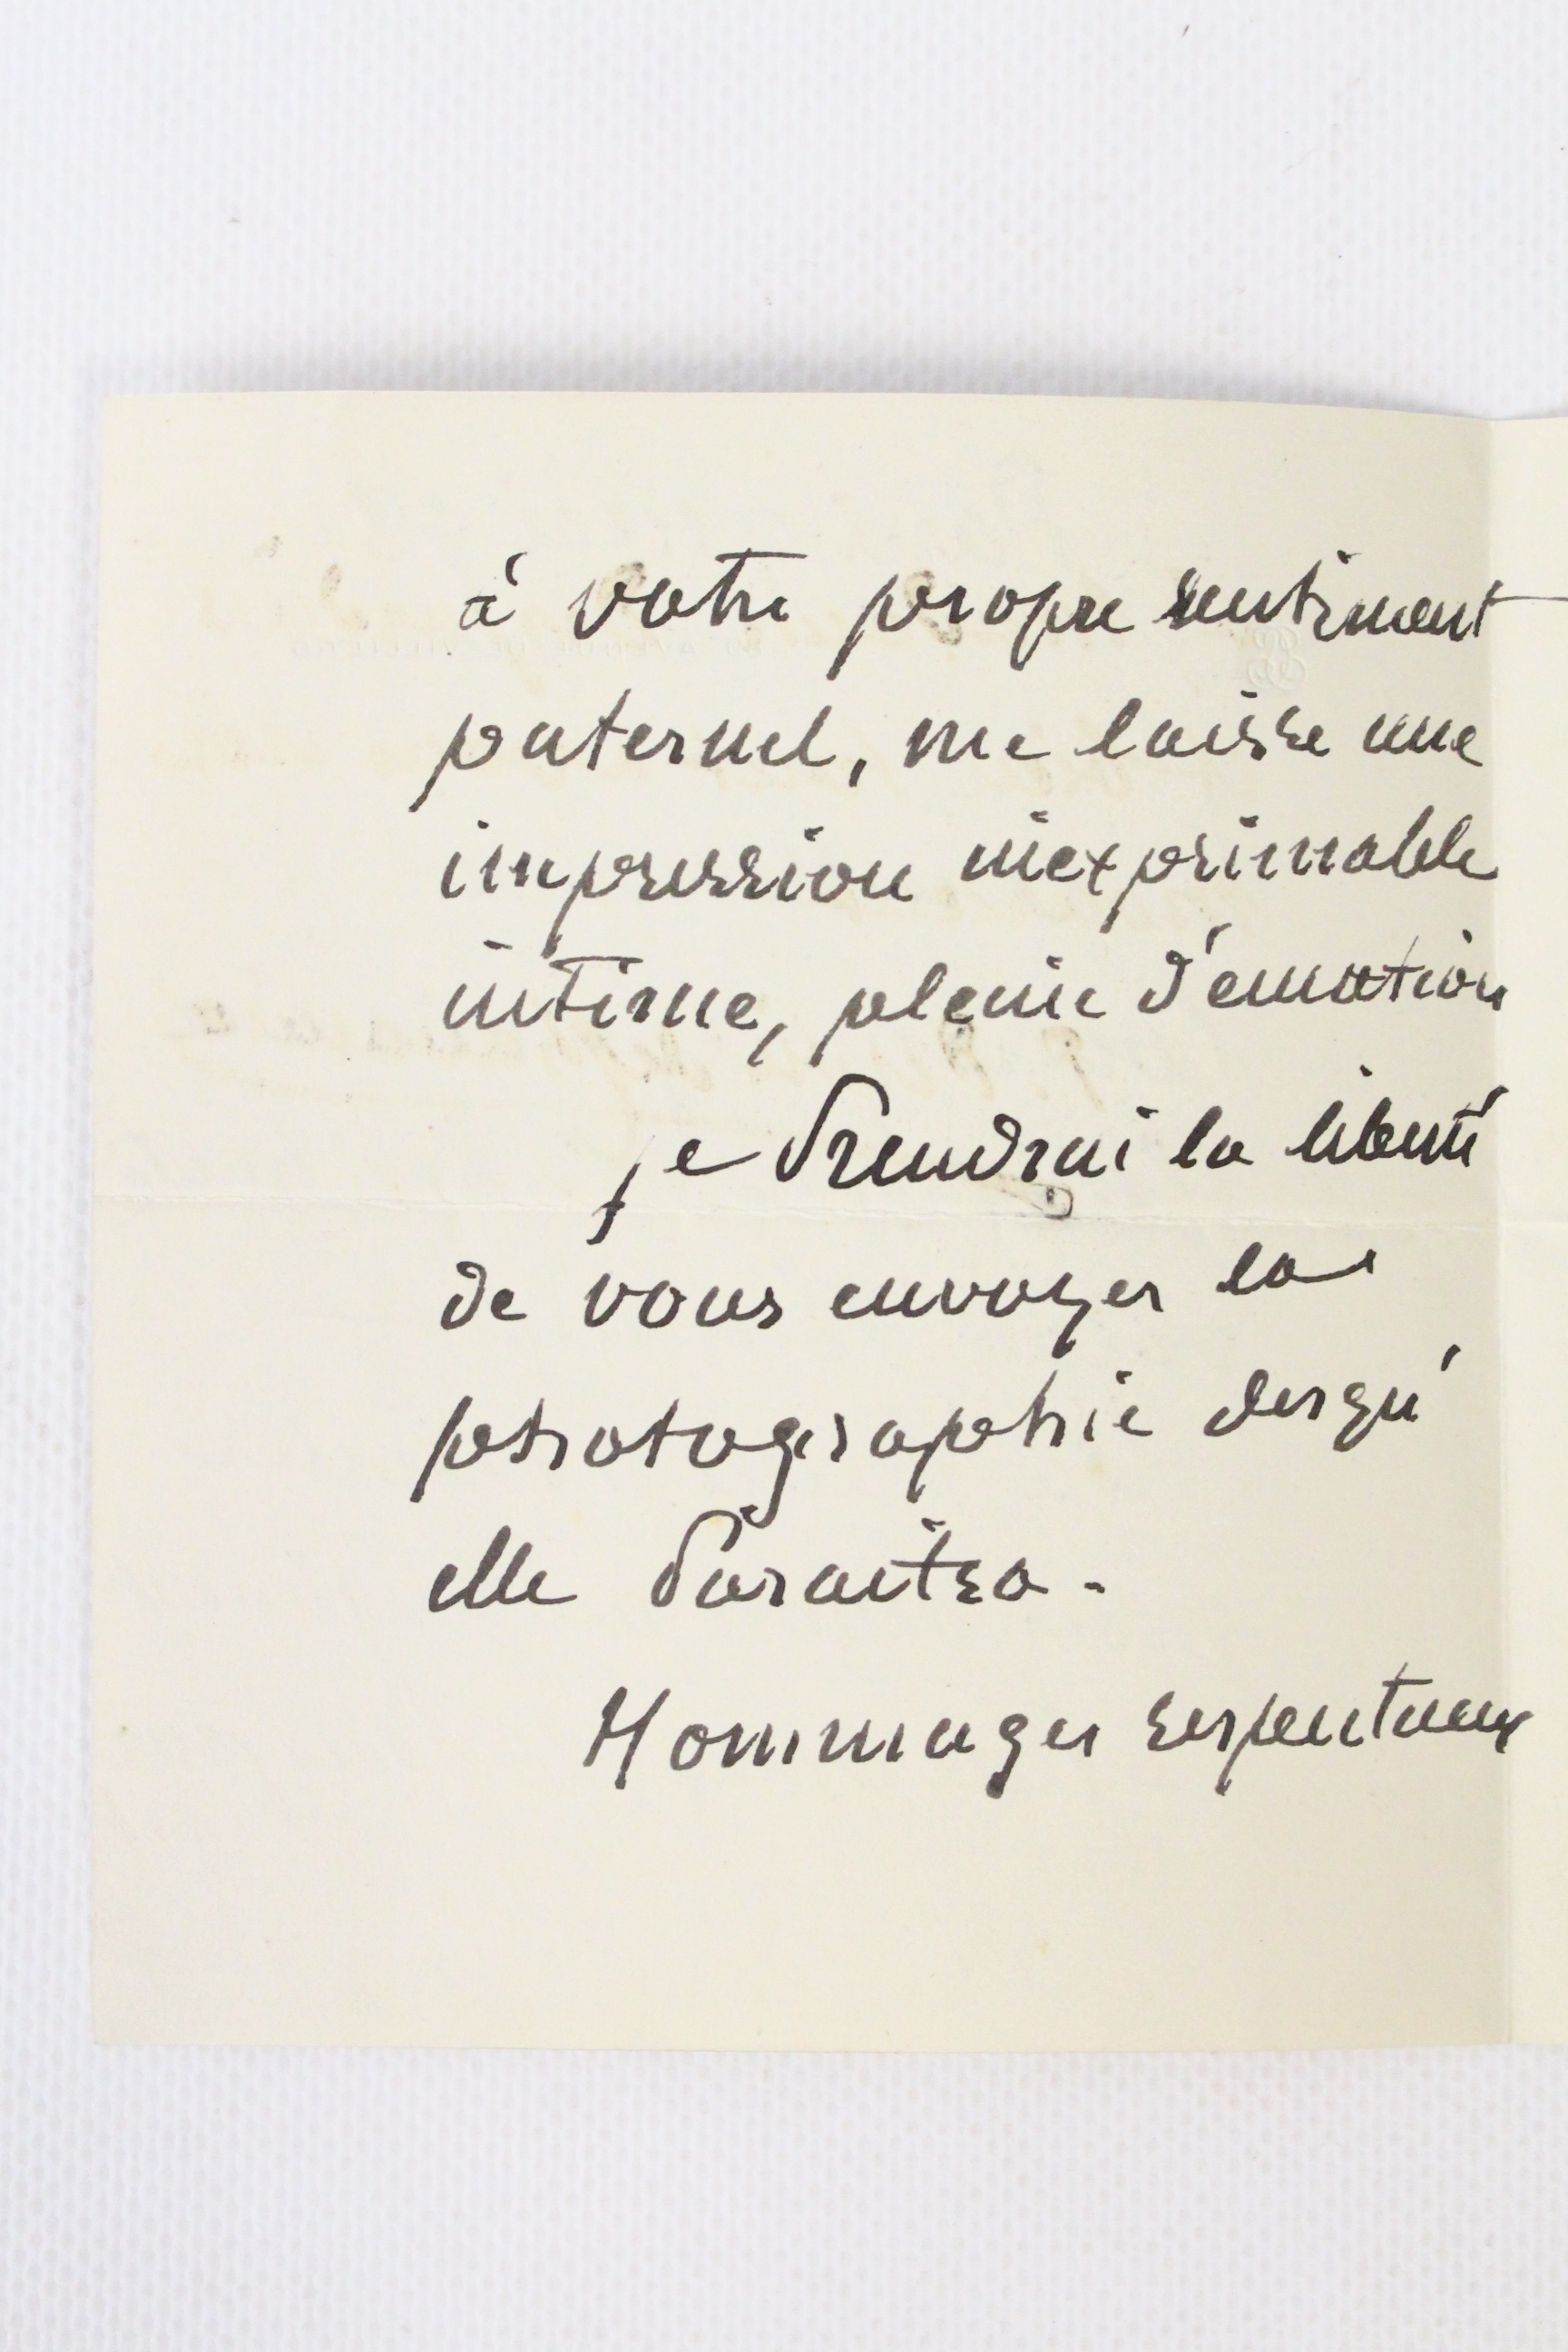 à votre propre sentiment
paternel, me laisse une
impression inexprimable
intime, pleine d'émotion
je Prendrai la liberté
de vous envoyer la
photographie dès qu'
elle Paraitra.
Hommages respectueux